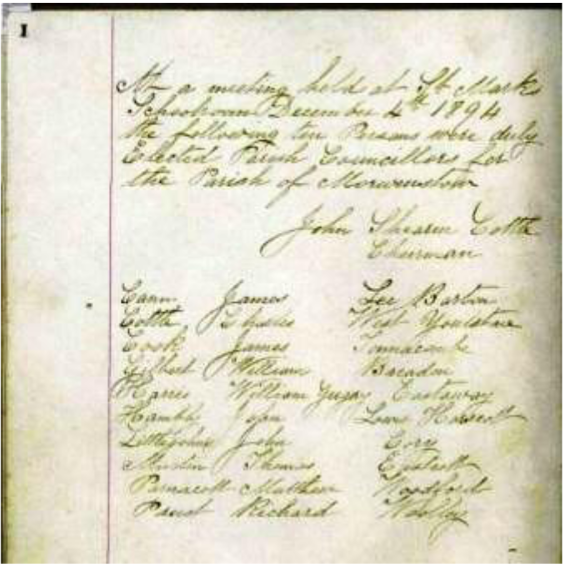 1
At a meeting held at St Marks
Schoolroom December 4th 1894
the following ten Persons were duly
Elected Parish Councillors for
the Parish of Morwenstow
John Shearm Cottle
Chairman
Cann James Lee Barton
Cottle Charles West Youlstone
Cook James Tonnacombe
Gilbert William
Harris William Eastaway
Hambly John Lower
Littlejohns John Cory
Thomas
Matthew Woodford
Richard Woolley